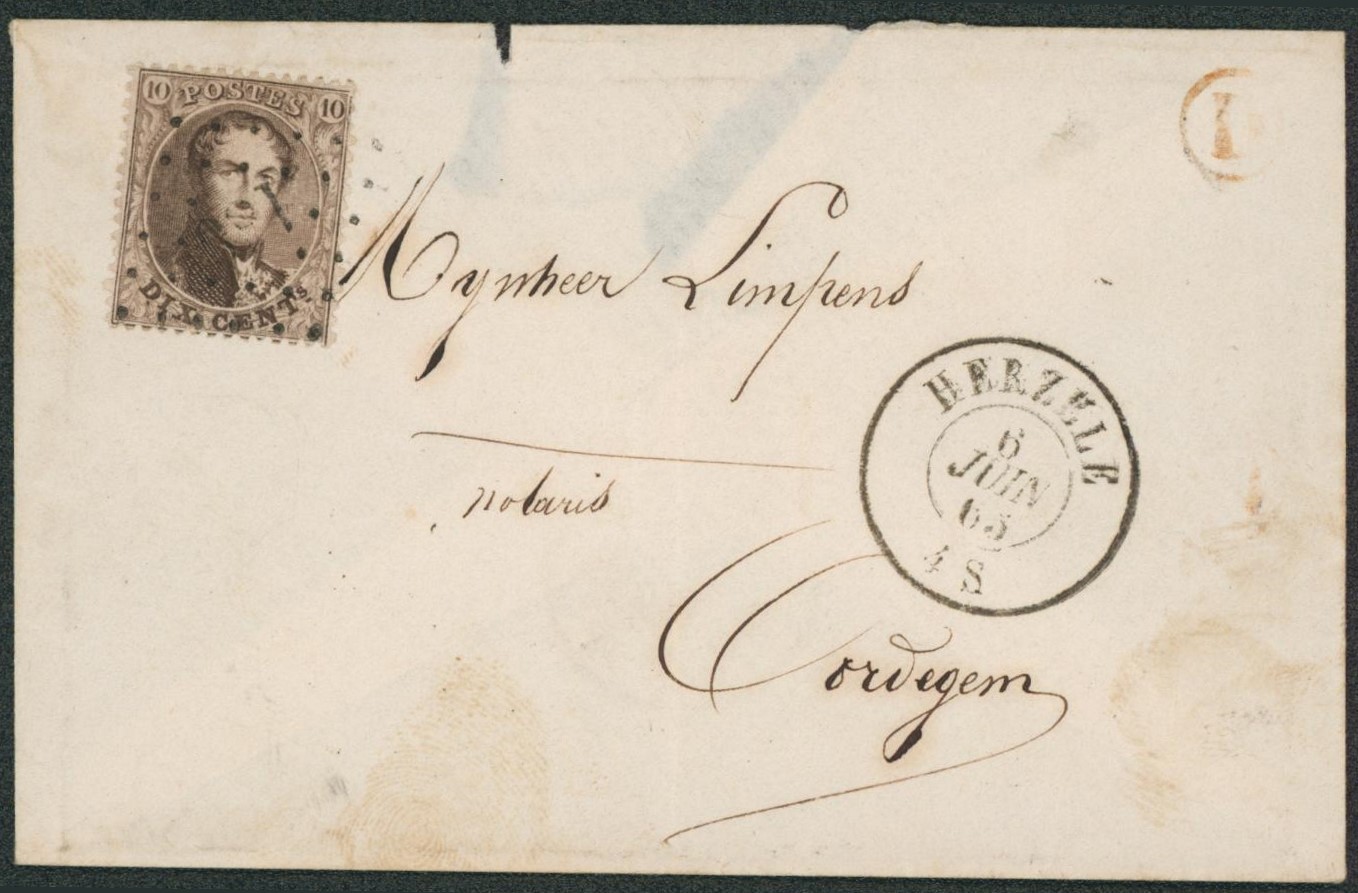 10 POSTES 10
DIX CENTS.
I
Mynheer Limpens
notaris
Oordegem
HERZELE
6
JUIN
65
4 S